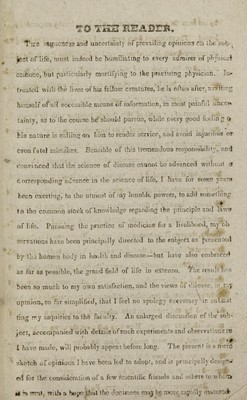 TO THE READER.
The vagueness and uncertainty of prevailing opinions on the sub-
ject of life, must indeed be humiliating to every admirer of physical
science, but particularly mortifying to the practising physician. In-
trusted with the lives of his fellow creatures, he is often after, availing
himself of all accessible means of information, in most painful uncer-
tainty, as to the course he should pursue, while every good feeling of
his nature is calling on him to render service, and avoid injurious or
even fatal mistakes. Sensible of this tremendous responsibility, and
convinced that the science of disease cannot be advanced without a
corresponding advance in the science of life, I have for some years
been exerting, to the utmost of my humble powers, to add something
to the common stock of knowledge regarding the principle and laws
of life. Pursuing the practice of medicine for a livelihood, my ob-
servations have been principally directed to the subject as presented
by the human body in health and disease—but have also embraced
as far as possible, the grand field of life in extenso. The results has
been so much to my own satisfaction, and the views of disease, in my
opinion, so far simplified, that I feel no apology necessary in submit
ting my inquiries to the faculty. An enlarged discussion of the sub-
ject, accompanied with details of such experiments and observations as
I have made, will probably appear before long. The present is a mere
sketch of opinions I have been led to adopt, and is principally design-
ed for the consideration of a few scientific friends and others to whom
it is sent, with a hope that the doctrines may be more rapidly matured